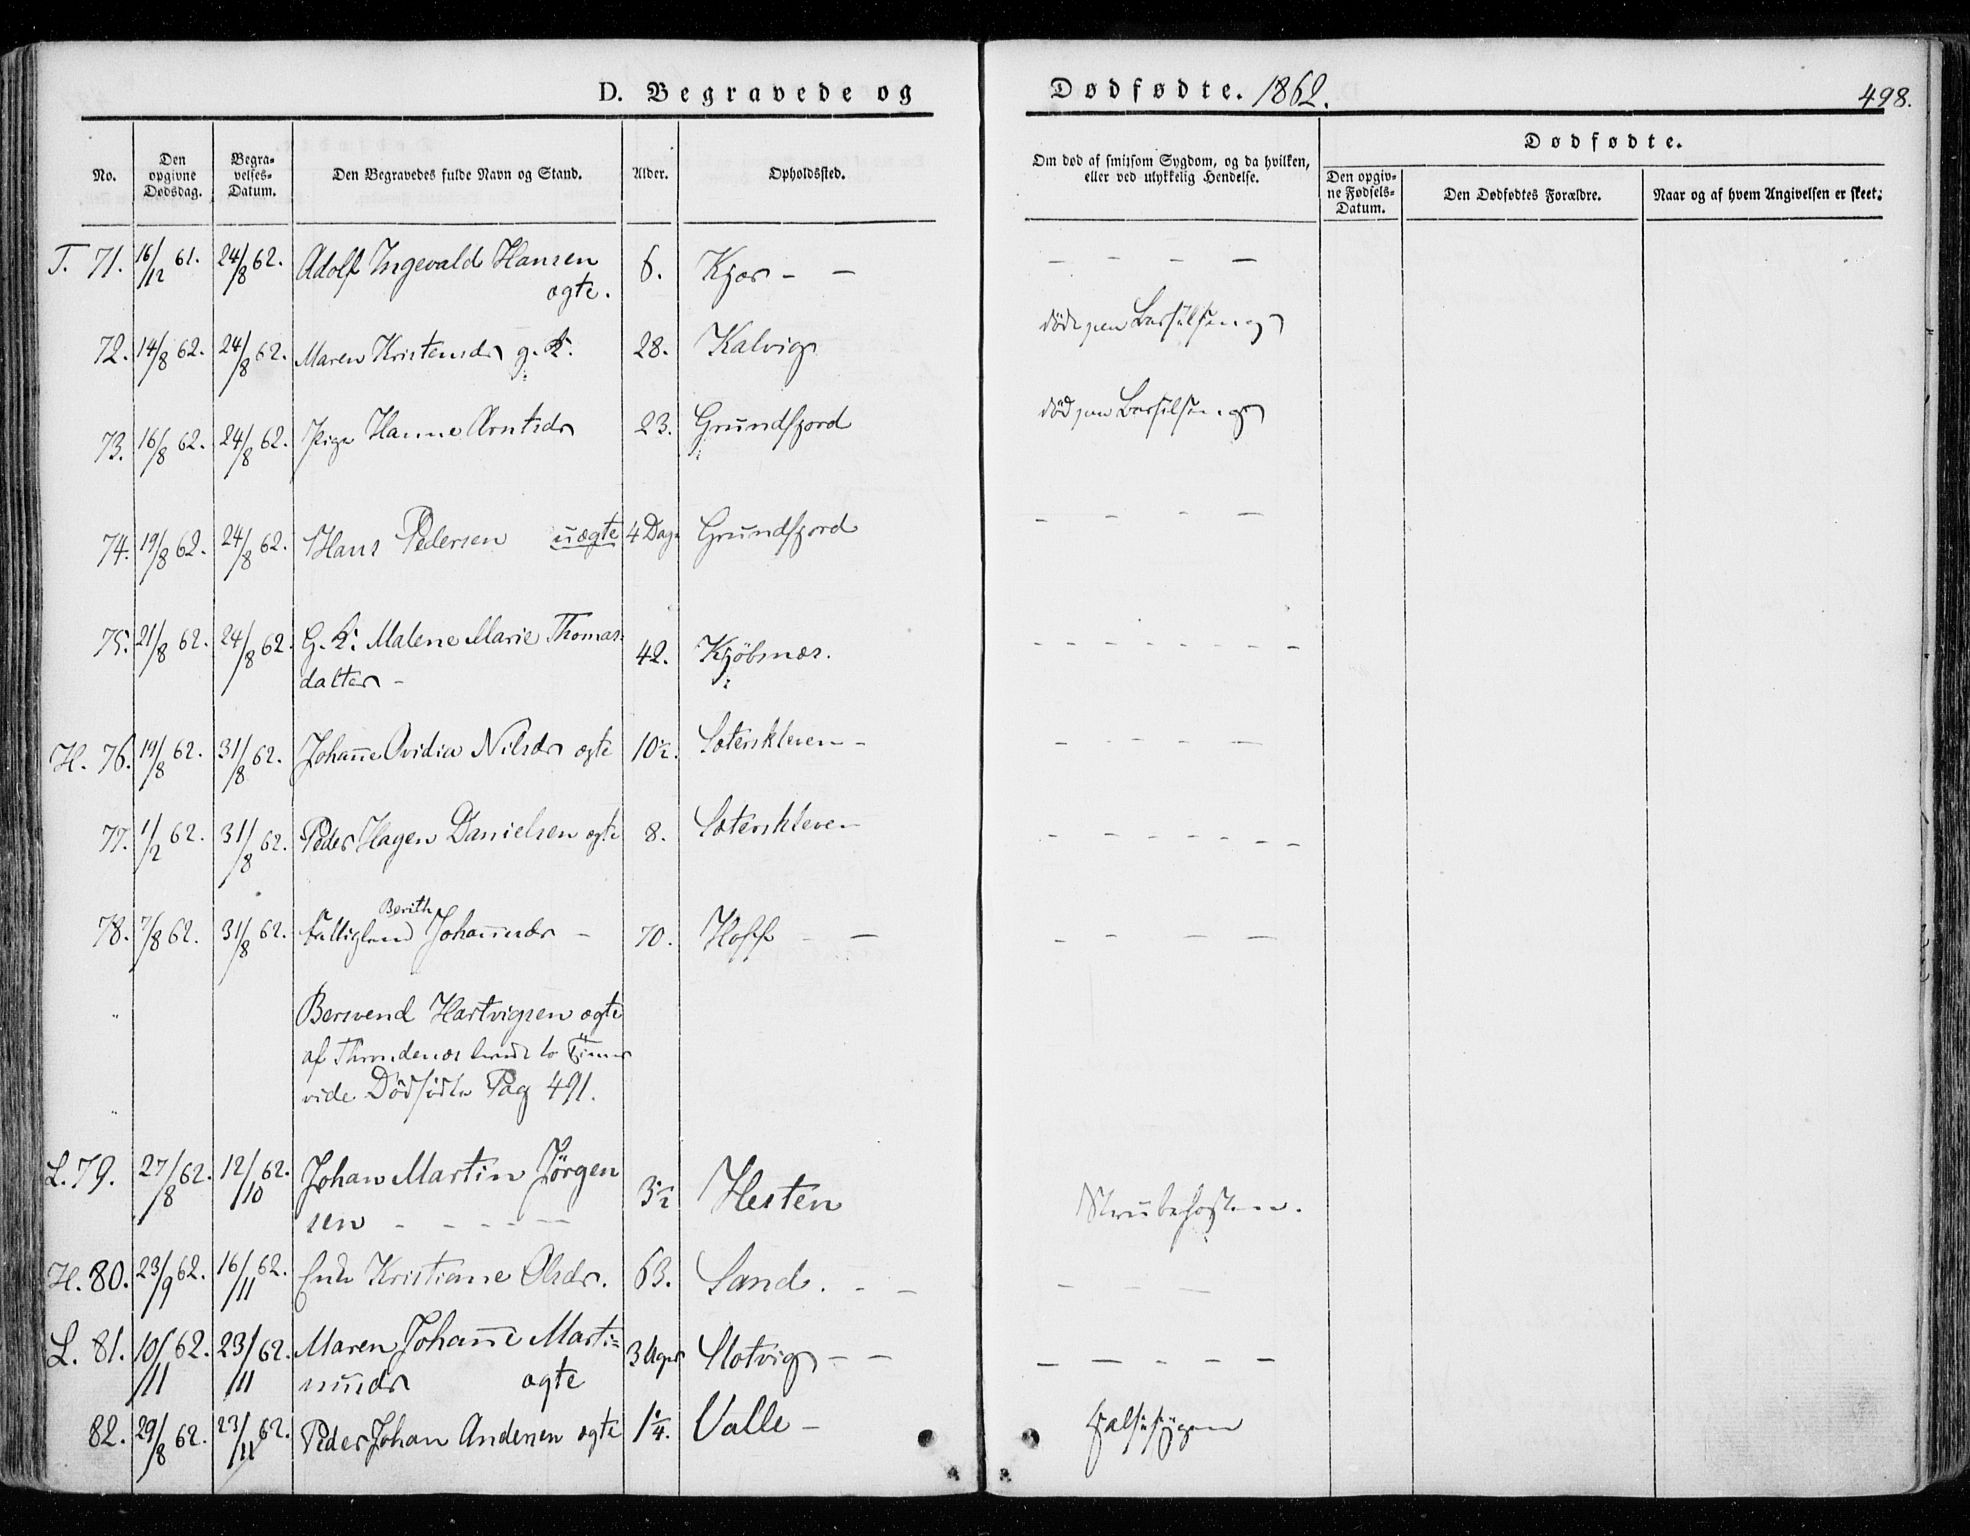 D. Begravede og Dødfødte. 1862. 498.
No. Den opgivne Dødsdag. Begravelses-Datum. Den Begravedes fulde Navn og Stand. Alder. Opholdssted. Om død af smitsom Sygdom, og da hvilken, eller ved ulykkelig Hendelse. Dødfødte.
Den opgivne Fødsels-Datum. Den Dødfødtes Forældre. Naar og af hvem Angivelsen er skeet.
T. 71. 16/12 61. 24/8 62. Adolf Ingevald Hansen 6. Kjær - -
ægte.
72. 14/8 62. 24/8 62. Maren Kristensdr g. K. 28. Kalvig døde paa Barselseng
73. 16/8 62. 24/8 62. Pige Hanne Arntsdr 23. Grundfjord død paa Barselseng
74. 19/8 62. 24/8 62. Hans Pedersen uægte 4 Dage Grundfjord
75. 21/8 62. 24/8 62. G. K. Malene Marie Thomas-
datter - 42. Kjöbnæs.
H. 76. 19/8 62. 31/8 62. Johanne Ovidia Nilsdr ægte 10½. Sæterskleven -
77. 1/2 62. 31/8 62. Peder Hagen Danielsen ægte 8. Sæterskleven
78. 7/8 62. 31/8 62. Berith
Fattiglem Johannesdr - 70. Hoff - -
Bersvend Hartvigsen ægte
af Throndenæs
vide Dödfödte Pag 491.
L. 79. 27/8 62. 12/10 62. Johan Martin Jörgen
sen - - - - 3½ Hesten Strubehosten.
H. 80. 23/9 62. 16/11 62. Enke Kristiane Olsdr. 63. Sand. - -
L. 81. 10/11 62. 23/11 62. Maren Johanne Marti-
nusdr ægte 3 Uger Slotvig - -
82. 29/8 62. 23/11 62. Peder Johan Andersen ægte 1¼. Valle - Halssygen